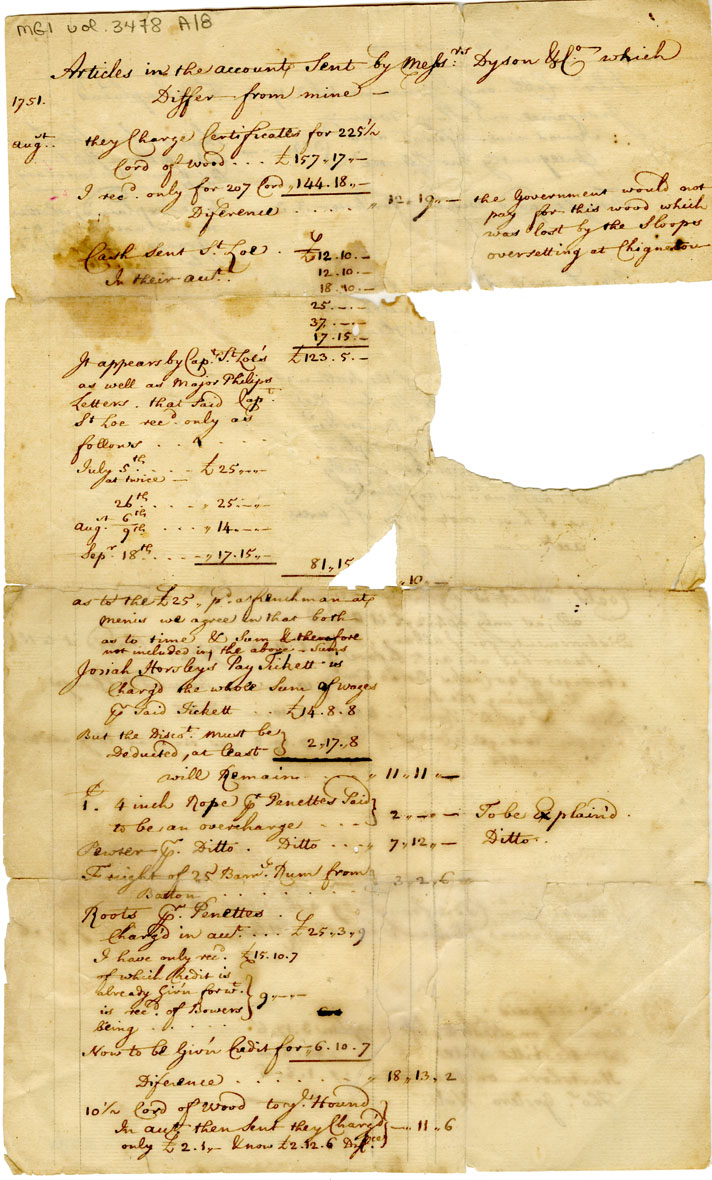 MG1 vol. 3478 A/8
Articles in the account Sent by Messrs. Dyson & Co. which
Differ from mine —
1751.
Augst. they Charge Certificates for 225½
Cord of Wood . . . £157,,17,,—
I recd. only for 207 Cord ,,144.18,,—
Diference . . . . . ,, 12,,19,,— the Government would not
pay for this wood which
was lost by the Sloops
oversetting at Chignectou
Cash Sent St. Loe . £12.10.—
In their acct. 12.10.—
18.10.—
25.—.—
37.—.—
17.15.—
£123.5.—
It appears by Capt. St. Loe's
as well as Major Philips
Letters. that said Capt.
St Loe recd. only as
follows . . . . .
July 5th . . . . £25,,—,,—
at twice —
26th . . . ,,25,,—,,—
Augst 6th
9th . . . ,,14.—.—
Sepr. 18th . . . ,,17.15,,— 81,,15
,,10.—
as to the £25,, pd. a frenchman at
Menis we agree in that both
as to time & Sum & therefore
not included in the above Sums
Josiah Horsley's Pay Tickett is
Charg'd the whole Sum of wages
Pr. Said Tickett . . £14.8.8
But the Discot. must be
Deducted, at least } 2,,17,,8
will Remain . . . ,, 11,,11,,—
1. 4 inch Rope Pr. Penettes Said
to be an overcharge . . . } 2,,—,,— To be Explain'd.
Pewter Pr. Ditto. Ditto . . ,, 7,,12,,— Ditto.
Freight of 25 Barrs. Rum from
Baston . . . . . . . 3,,2,,6
Roots Pr. Penettes .
Charg'd in acct. . . . £25,,3,,9
I have only recd. £15.10.7
of which Credit is
already Giv'n for wt.
is recd. of Bowers
being . . . . . } 9,,—,,—
Now to be Giv'n Credit for ,,6.10.7
Diference . . . . . . ,, 18,,13,,2
10½ Cord of Wood to ye. Hound
In acct. then sent they Charg'd
only £2.1,,— & now £2.12.6 Difce. } —,,11,,6